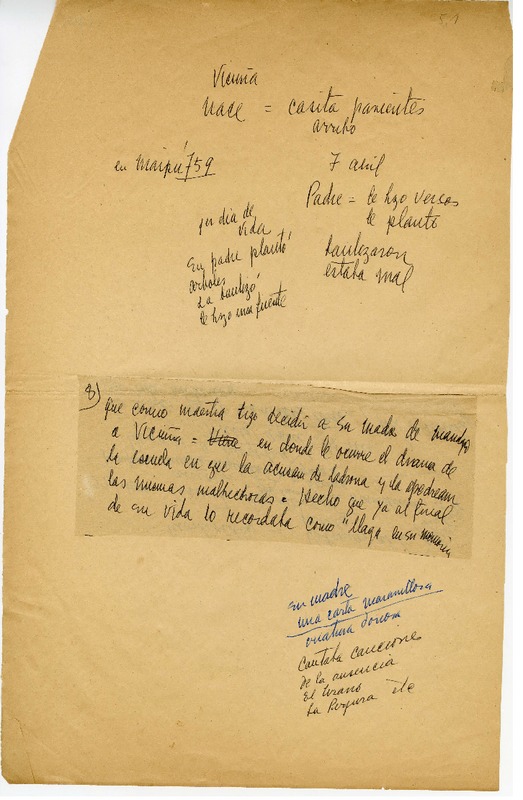 5,1
Vicuña
nace = casita parientes
arribo
en Maipú 759
7 abril
Padre = le hizo versos
le plantó
bautizaron
estaba mal
1er dia de
vida
Su padre plantó
arboles
La bautizó
le hizo una fuente
8) que como maestra hizo decidir a su madre de mandar
a Vicuña = en donde le ocurre el drama de
la escuela en que la acusan de ladrona y la apedrean
las mismas malhechoras. Hecho que ya al final
de su vida lo recordaba como "llaga en su memoria
Su madre
una carta maravillosa
criatura
Cantaba canciones
De la ausencia
El
La etc